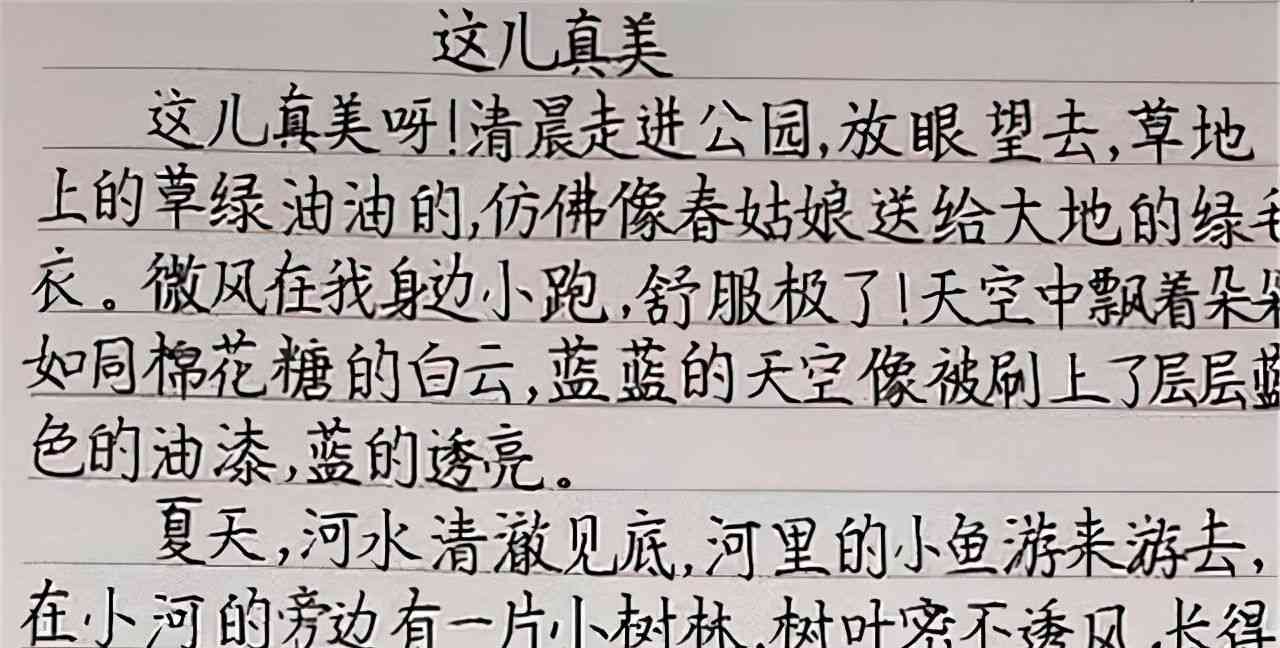 这儿真美
这儿真美呀!清晨走进公园,放眼望去,草地
上的草绿油油的,仿佛像春姑娘送给大地的绿毛
衣。微风在我身边小跑,舒服极了!天空中飘着朵朵
如同棉花糖的白云,蓝蓝的天空像被刷上了层层蓝
色的油漆,蓝的透亮。
夏天,河水清澈见底,河里的小鱼游来游去,
在小河的旁边有一片小树林,树叶密不透风,长得